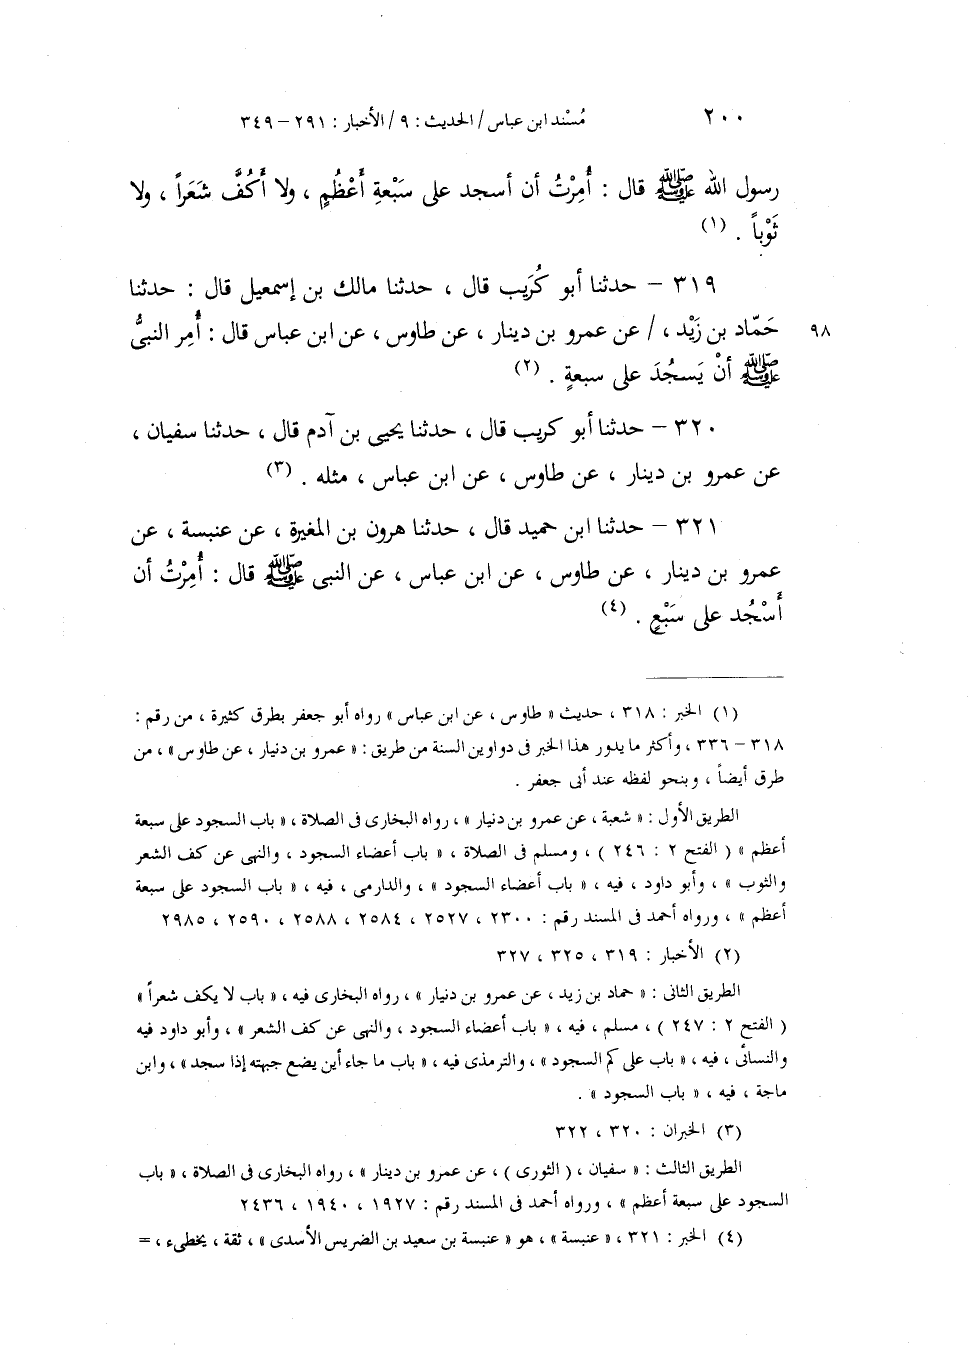 ٢٠٠ مُسْند ابن عباس / الحديث : ٩ / الأخبار : ٢٩١ – ٣٤٩
رسول الله ﷺ قال : أُمِرْتُ أن أسجد على سَبْعةِ أَعْظُمٍ ، ولا أَكُفَّ شَعَراً ، ولا
ثَوْباً . (١)
٣١٩ – حدثنا أبو كُرَيب قال ، حدثنا مالك بن إسمعيل قال : حدثنا
٩٨ حَمّاد بن زَيْد ، / عن عمرو بن دينار ، عن طاوس ، عن ابن عباس قال : أُمِر النبىُّ
ﷺ أنْ يَسجُدَ على سبعةٍ . (٢)
٣٢٠ – حدثنا أبو كريب قال ، حدثنا يحيى بن آدم قال ، حدثنا سفيان ،
عن عمرو بن دينار ، عن طاوس ، عن ابن عباس ، مثله . (٣)
٣٢١ – حدثنا ابن حميد قال ، حدثنا هرون بن المغيرة ، عن عنبسة ، عن
عمرو بن دينار ، عن طاوس ، عن ابن عباس ، عن النبى ﷺ قال : أُمِرْتُ أن
أَسْجُد على سَبْعٍ . (٤)
(١) الخبر : ٣١٨ ، حديث « طاوس ، عن ابن عباس » رواه أبو جعفر بطرق كثيرة ، من رقم :
٣١٨ – ٣٣٦ ، وأكثر ما يدور هذا الخبر فى دواوين السنة من طريق : « عمرو بن دنيار ، عن طاوس » ، من
طرق أيضاً ، وبنحو لفظه عند أبى جعفر .
الطريق الأول : « شعبة ، عن عمرو بن دنيار » ، رواه البخارى فى الصلاة ، « باب السجود على سبعة
أعظم » ( الفتح ٢ : ٢٤٦ ) ، ومسلم فى الصلاة ، « باب أعضاء السجود ، والنهى عن كف الشعر
والثوب » ، وأبو داود ، فيه ، « باب أعضاء السجود » ، والدارمى ، فيه ، « باب السجود على سبعة
أعظم » ، ورواه أحمد فى المسند رقم : ٢٣٠٠ ، ٢٥٢٧ ، ٢٥٨٤ ، ٢٥٨٨ ، ٢٥٩٠ ، ٢٩٨٥
(٢) الأخبار : ٣١٩ ، ٣٢٥ ، ٣٢٧
الطريق الثانى : « حماد بن زيد ، عن عمرو بن دنيار » ، رواه البخارى فيه ، « باب لا يكف شعراً »
( الفتح ٢ : ٢٤٧ ) ، مسلم ، فيه ، « باب أعضاء السجود ، والنهى عن كف الشعر » ، وأبو داود فيه
والنسائى ، فيه ، « باب على كم السجود » ، والترمذى فيه ، « باب ما جاء أين يضع جبهته إذا سجد » ، وابن
ماجة ، فيه ، « باب السجود » .
(٣) الخبران : ٣٢٠ ، ٣٢٢
الطريق الثالث : « سفيان ، ( الثورى ) ، عن عمرو بن دينار » ، رواه البخارى فى الصلاة ، « باب
السجود على سبعة أعظم » ، ورواه أحمد فى المسند رقم : ١٩٢٧ ، ١٩٤٠ ، ٢٤٣٦
(٤) الخبر : ٣٢١ ، « عنبسة » ، هو « عنبسة بن سعيد بن الضريس الأسدى » ، ثقة ، يخطىء ، =